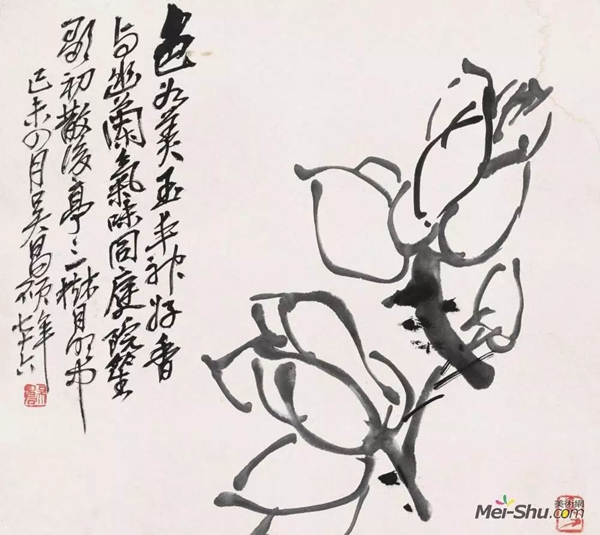 色如美玉丰神好香
与幽蘭氣味同庭院笙
歌初散後亭亭一樹月明中
己未四月吳昌碩年七十六
美術網
Mei-Shu.com